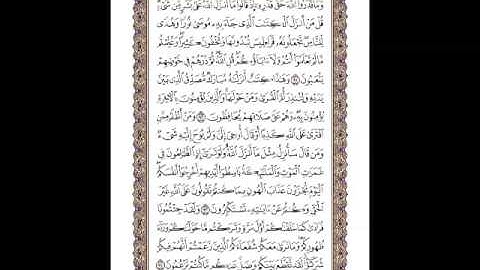 وَمَا قَدَرُوا۟ ٱللَّهَ حَقَّ قَدْرِهِۦٓ إِذْ قَالُوا۟ مَآ أَنزَلَ ٱللَّهُ عَلَىٰ بَشَرٍ مِّن شَىْءٍ
قُلْ مَنْ أَنزَلَ ٱلْكِتَـٰبَ ٱلَّذِى جَآءَ بِهِۦ مُوسَىٰ نُورًا وَهُدًى
لِّلنَّاسِ تَجْعَلُونَهُۥ قَرَاطِيسَ تُبْدُونَهَا وَتُخْفُونَ كَثِيرًا وَعُلِّمْتُم
مَّا لَمْ تَعْلَمُوٓا۟ أَنتُمْ وَلَآ ءَابَآؤُكُمْ قُلِ ٱللَّهُ ثُمَّ ذَرْهُمْ فِى خَوْضِهِمْ
يَلْعَبُونَ ٩١ وَهَـٰذَا كِتَـٰبٌ أَنزَلْنَـٰهُ مُبَارَكٌ مُّصَدِّقُ ٱلَّذِى بَيْنَ
يَدَيْهِ وَلِتُنذِرَ أُمَّ ٱلْقُرَىٰ وَمَنْ حَوْلَهَا وَٱلَّذِينَ يُؤْمِنُونَ بِٱلْـَٔاخِرَةِ
يُؤْمِنُونَ بِهِۦ وَهُمْ عَلَىٰ صَلَاتِهِمْ يُحَافِظُونَ ٩٢ وَمَنْ أَظْلَمُ مِمَّنِ
ٱفْتَرَىٰ عَلَى ٱللَّهِ كَذِبًا أَوْ قَالَ أُوحِىَ إِلَىَّ وَلَمْ يُوحَ إِلَيْهِ شَىْءٌ
وَمَن قَالَ سَأُنزِلُ مِثْلَ مَآ أَنزَلَ ٱللَّهُ وَلَوْ تَرَىٰٓ إِذِ ٱلظَّـٰلِمُونَ فِى
غَمَرَٰتِ ٱلْمَوْتِ وَٱلْمَلَـٰٓئِكَةُ بَاسِطُوٓا۟ أَيْدِيهِمْ أَخْرِجُوٓا۟ أَنفُسَكُمُ
ٱلْيَوْمَ تُجْزَوْنَ عَذَابَ ٱلْهُونِ بِمَا كُنتُمْ تَقُولُونَ عَلَى ٱللَّهِ غَيْرَ
ٱلْحَقِّ وَكُنتُمْ عَنْ ءَايَـٰتِهِۦ تَسْتَكْبِرُونَ ٩٣ وَلَقَدْ جِئْتُمُونَا
فُرَٰدَىٰ كَمَا خَلَقْنَـٰكُمْ أَوَّلَ مَرَّةٍ وَتَرَكْتُم مَّا خَوَّلْنَـٰكُمْ وَرَآءَ
ظُهُورِكُمْ وَمَا نَرَىٰ مَعَكُمْ شُفَعَآءَكُمُ ٱلَّذِينَ زَعَمْتُمْ أَنَّهُمْ فِيكُمْ
شُرَكَـٰٓؤُا۟ لَقَد تَّقَطَّعَ بَيْنَكُمْ وَضَلَّ عَنكُم مَّا كُنتُمْ تَزْعُمُونَ ٩٤